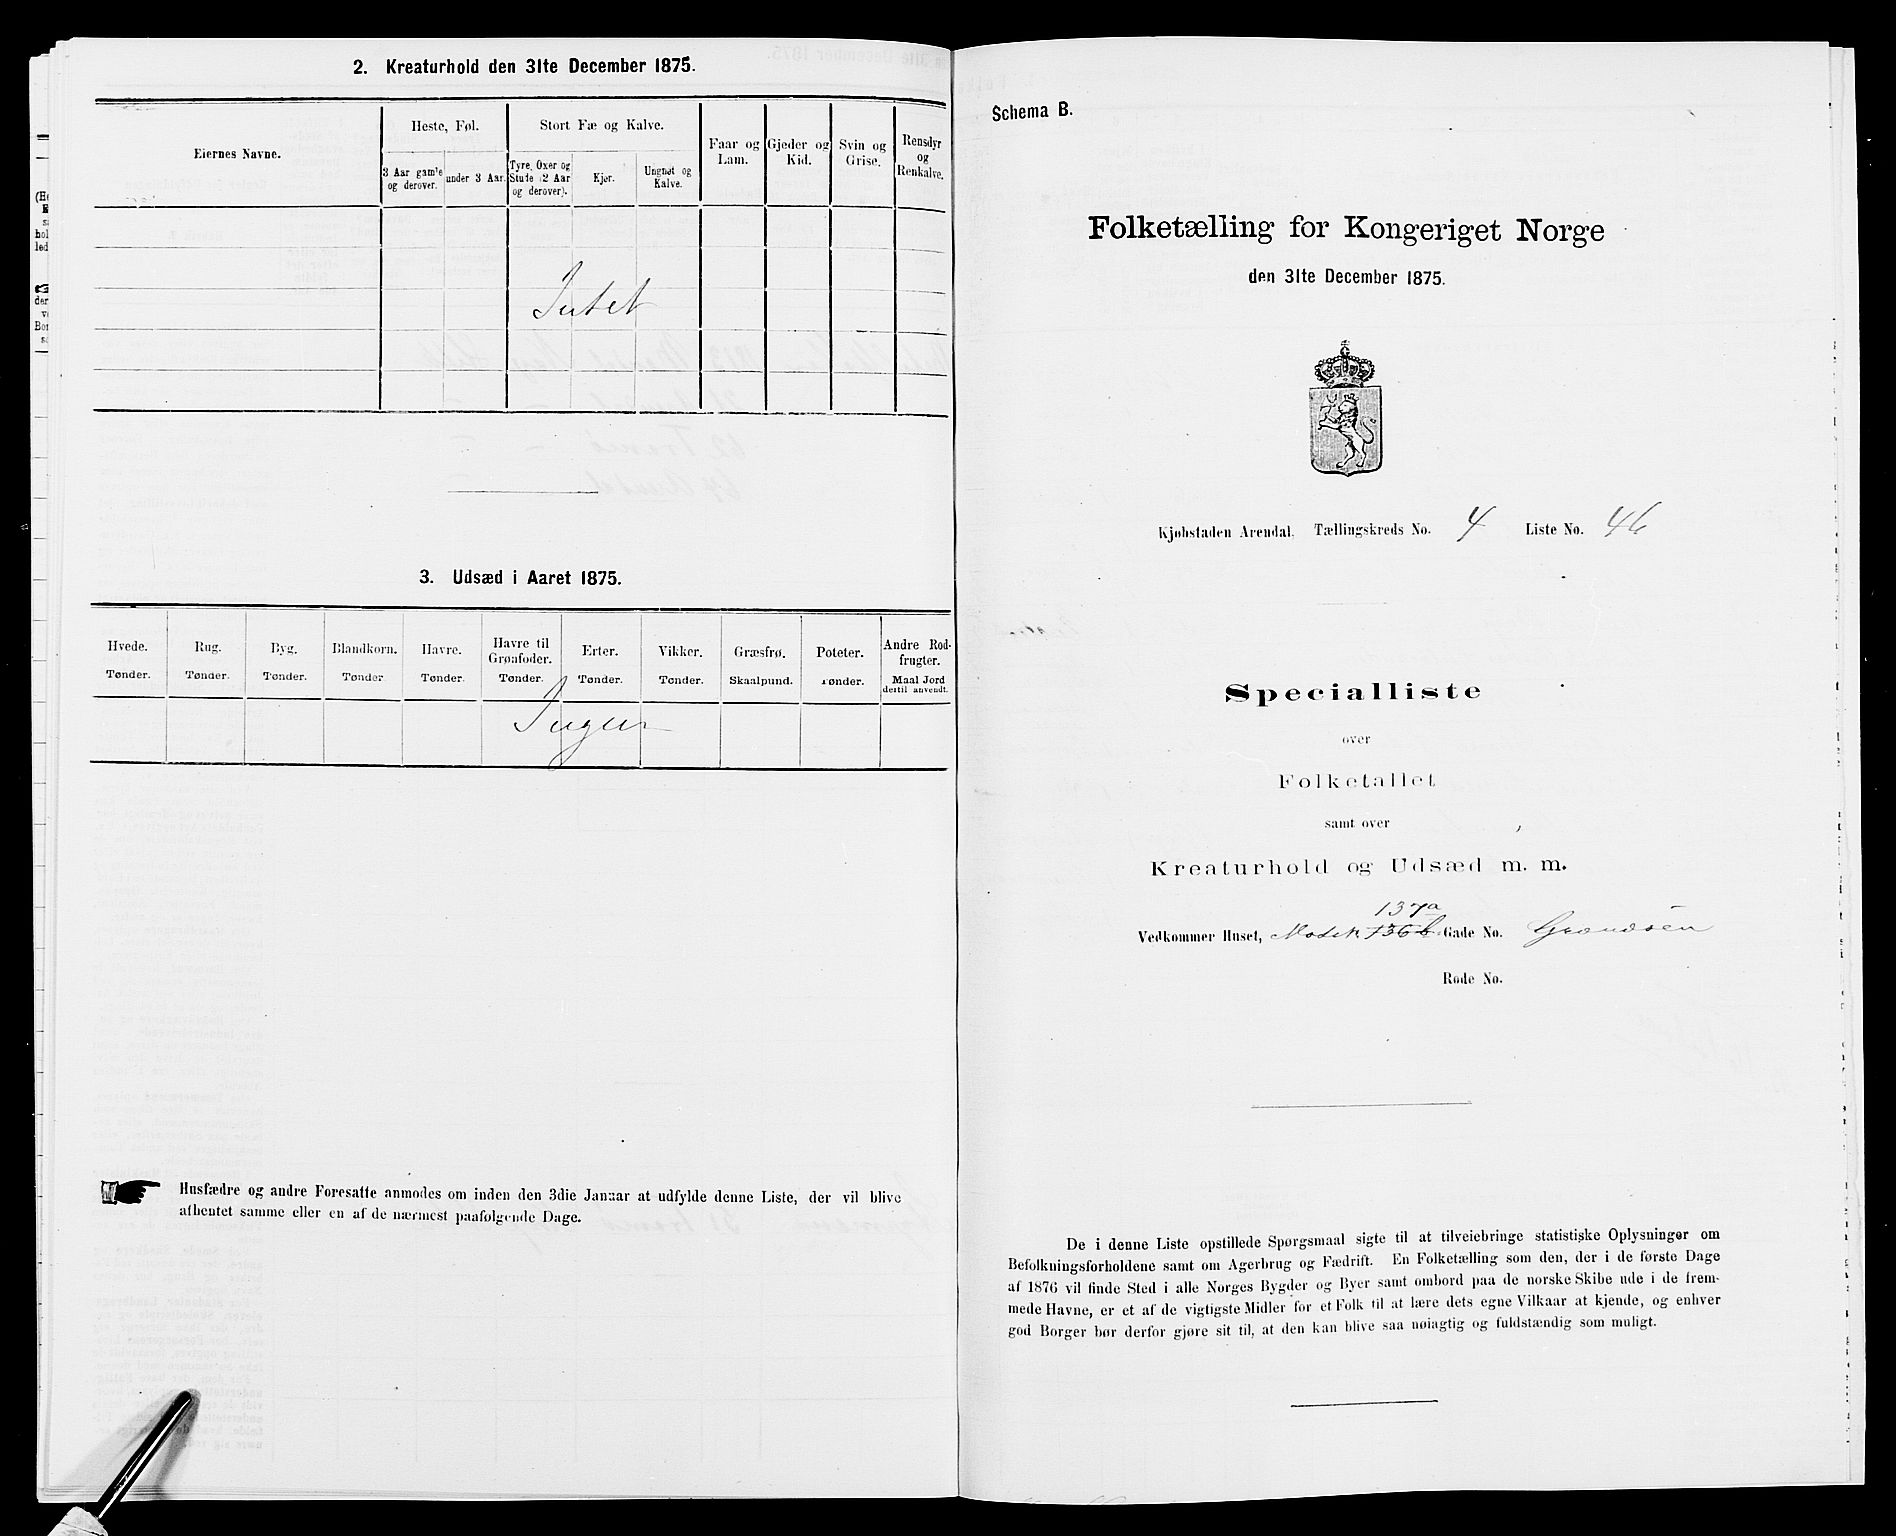 2. Kreaturhold den 31te December 1875.
Eiernes Navne.
Heste, Føl.
Stort Fæ og Kalve.
Faar og Lam.
Gjeder og Kid.
Svin og Grise.
Rensdyr og Renkalve.
3 Aar gam'e og derover.
under 3 Aar.
Tyre, Oxer og Stude (2 Aar og derover).
Kjør.
Ungnøt og Kalve.
Intet
3. Udsæd i Aaret 1875.
Hvede. Rug. Byg. Blandkorn. Havre. Havre til Grønfoder. Erter. Vikker. Græsfrø. Poteter. Andre Rodfrugter.
Tønder. Tønder. Tønder. Tønder Tønder. Tønder. Tønder. Tønder. Skaalpund. Tønder. Maal Jord dertil anvendt.
Ingen
Husfædre og andre Foresatte anmodes om inden den 3die Januar at udfylde denne Liste, der vil blive
afhentet samme eller en af de nærmest paafølgende Dage.
Schema B.
Folketælling for Kongeriget Norge
den 31te December 1875.
Kjøbstaden Arendal. Tællingskreds No. 4 Liste No. 46
Specialliste
over
Folketallet
samt over
Kreaturhold og Udsæd m. m.
137a
Vedkommer Huset, Matr. 136b Gade No.
Rode No.
De i denne Liste opstillede Spørgsmaal sigte til at tilveiebringe statistiske Oplysninger om
Befolkningsforholdene samt om Agerbrug og Fædrift. En Folketælling som den, der i de første Dage
af 1876 vil finde Sted i alle Norges Bygder og Byer samt ombord paa de norske Skibe ude i de frem-
mede Havne, er et af de vigtigste Midler for et Folk til at lære dets egne Vilkaar at kjende, og enhver
god Borger bør derfor gjøre sit til, at den kan blive saa nøiagtig og fuldstændig som muligt.